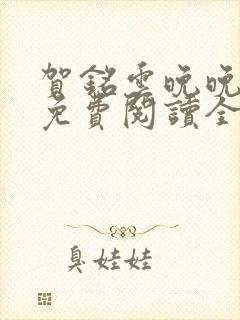 賀銘雲晚晚
免費閱讀全
臭娃娃